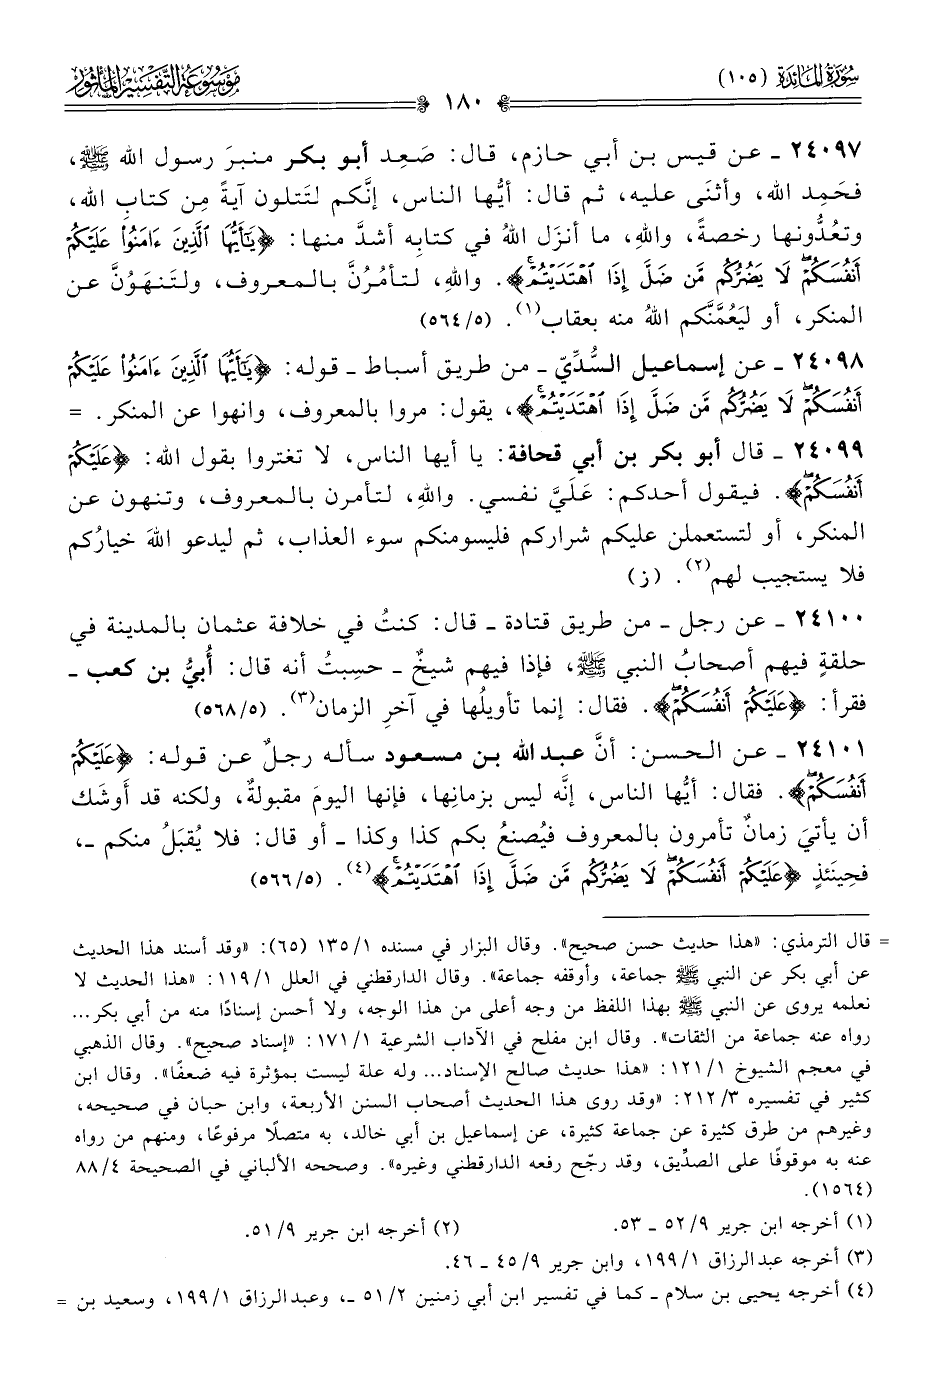 سُورَةُ المَائِدَة (١٠٥)
مَوْسُوعَةُ التَّفْسِيرِ المَأْثُور
١٨٠
٢٤٠٩٧ ـ عن قيس بن أبي حازم، قال: صَعِد أبو بكر منبرَ رسول الله ﷺ،
فحَمِد الله، وأثنَى عليه، ثم قال: أيُّها الناس، إنَّكم لتَتلون آيةً مِن كتابِ الله،
وتعُدُّونها رخصةً، واللهِ، ما أنزَل اللهُ في كتابِه أشدَّ منها: ﴿يَٰٓأَيُّهَا ٱلَّذِينَ ءَامَنُواْ عَلَيۡكُمۡ
أَنفُسَكُمۡۖ لَا يَضُرُّكُم مَّن ضَلَّ إِذَا ٱهۡتَدَيۡتُمۡۚ﴾. واللهِ، لتَأمُرُنَّ بالمعروف، ولتَنهَوُنَّ عن
المنكر، أو ليَعُمَّنَّكم اللهُ منه بعقاب(١). (٥٦٤/٥)
٢٤٠٩٨ ـ عن إسماعيل السُّدِّيّ ـ من طريق أسباط ـ قوله: ﴿يَٰٓأَيُّهَا ٱلَّذِينَ ءَامَنُواْ عَلَيۡكُمۡ
أَنفُسَكُمۡۖ لَا يَضُرُّكُم مَّن ضَلَّ إِذَا ٱهۡتَدَيۡتُمۡۚ﴾، يقول: مروا بالمعروف، وانهوا عن المنكر. =
٢٤٠٩٩ ـ قال أبو بكر بن أبي قحافة: يا أيها الناس، لا تغتروا بقول الله: ﴿عَلَيۡكُمۡ
أَنفُسَكُمۡۖ﴾. فيقول أحدكم: عَلَيَّ نفسي. واللهِ، لتأمرن بالمعروف، وتنهون عن
المنكر، أو لتستعملن عليكم شراركم فليسومنكم سوء العذاب، ثم ليدعو اللهَ خيارُكم
فلا يستجيب لهم(٢). (ز)
٢٤١٠٠ ـ عن رجل ـ من طريق قتادة ـ قال: كنتُ في خلافة عثمان بالمدينة في
حلقةٍ فيهم أصحابُ النبي ﷺ، فإذا فيهم شيخٌ ـ حسِبتُ أنه قال: أُبيُّ بن كعب ـ
فقرأ: ﴿عَلَيۡكُمۡ أَنفُسَكُمۡۖ﴾. فقال: إنما تأويلُها في آخرِ الزمان(٣). (٥٦٨/٥)
٢٤١٠١ ـ عن الحسن: أنَّ عبد الله بن مسعود سأله رجلٌ عن قوله: ﴿عَلَيۡكُمۡ
أَنفُسَكُمۡۖ﴾. فقال: أيُّها الناس، إنَّه ليس بزمانِها، فإنها اليومَ مقبولةٌ، ولكنه قد أوشَك
أن يأتيَ زمانٌ تأمرون بالمعروف فيُصنعُ بكم كذا وكذا ـ أو قال: فلا يُقبَلُ منكم ـ،
فحِينَئذٍ ﴿عَلَيۡكُمۡ أَنفُسَكُمۡۖ لَا يَضُرُّكُم مَّن ضَلَّ إِذَا ٱهۡتَدَيۡتُمۡۚ﴾(٤). (٥٦٦/٥)
= قال الترمذي: «هذا حديث حسن صحيح». وقال البزار في مسنده ١٣٥/١ (٦٥): «وقد أسند هذا الحديث
عن أبي بكر عن النبي ﷺ جماعة، وأوقفه جماعة». وقال الدارقطني في العلل ١١٩/١: «هذا الحديث لا
نعلمه يروى عن النبي ﷺ بهذا اللفظ من وجه أعلى من هذا الوجه، ولا أحسن إسنادًا منه من أبي بكر...
رواه عنه جماعة من الثقات». وقال ابن مفلح في الآداب الشرعية ١٧١/١: «إسناد صحيح». وقال الذهبي
في معجم الشيوخ ١٢١/١: «هذا حديث صالح الإسناد... وله علة ليست بمؤثرة فيه ضعفًا». وقال ابن
كثير في تفسيره ٢١٢/٣: «وقد روى هذا الحديث أصحاب السنن الأربعة، وابن حبان في صحيحه،
وغيرهم من طرق كثيرة عن جماعة كثيرة، عن إسماعيل بن أبي خالد، به متصلًا مرفوعًا، ومنهم من رواه
عنه به موقوفًا على الصدِّيق، وقد رجّح رفعه الدارقطني وغيره». وصححه الألباني في الصحيحة ٨٨/٤
(١٥٦٤).
(١) أخرجه ابن جرير ٥٢/٩ ـ ٥٣.
(٢) أخرجه ابن جرير ٥١/٩.
(٣) أخرجه عبدالرزاق ١٩٩/١، وابن جرير ٤٥/٩ ـ ٤٦.
(٤) أخرجه يحيى بن سلام ـ كما في تفسير ابن أبي زمنين ٥١/٢ ـ، وعبدالرزاق ١٩٩/١، وسعيد بن =